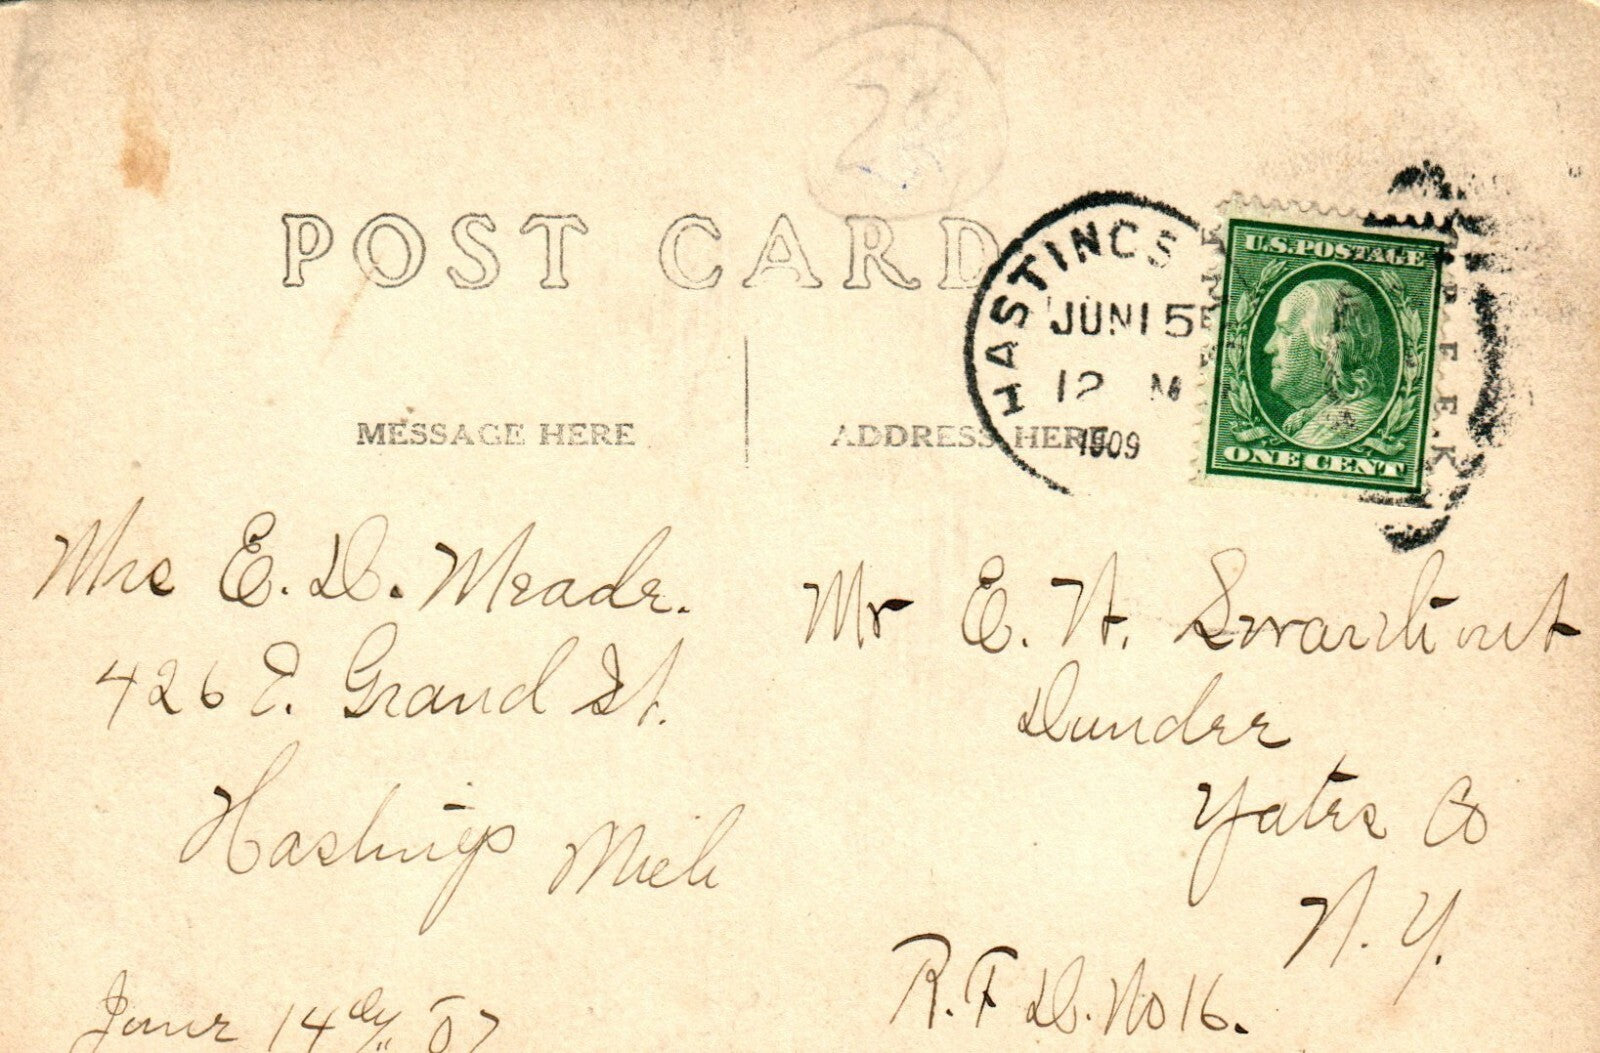 POST CARD
HASTINGS
JUN 15
12 M
1909
U.S. POSTAGE
ONE CENT
MESSAGE HERE
ADDRESS HERE
Mrs E. D. Meade.
426 E. Grand St.
Hastings Mich
June 14th 07
Mr E. H. Swarthout
Dundee
Yates Co
N. Y.
R. F. D. No 16.